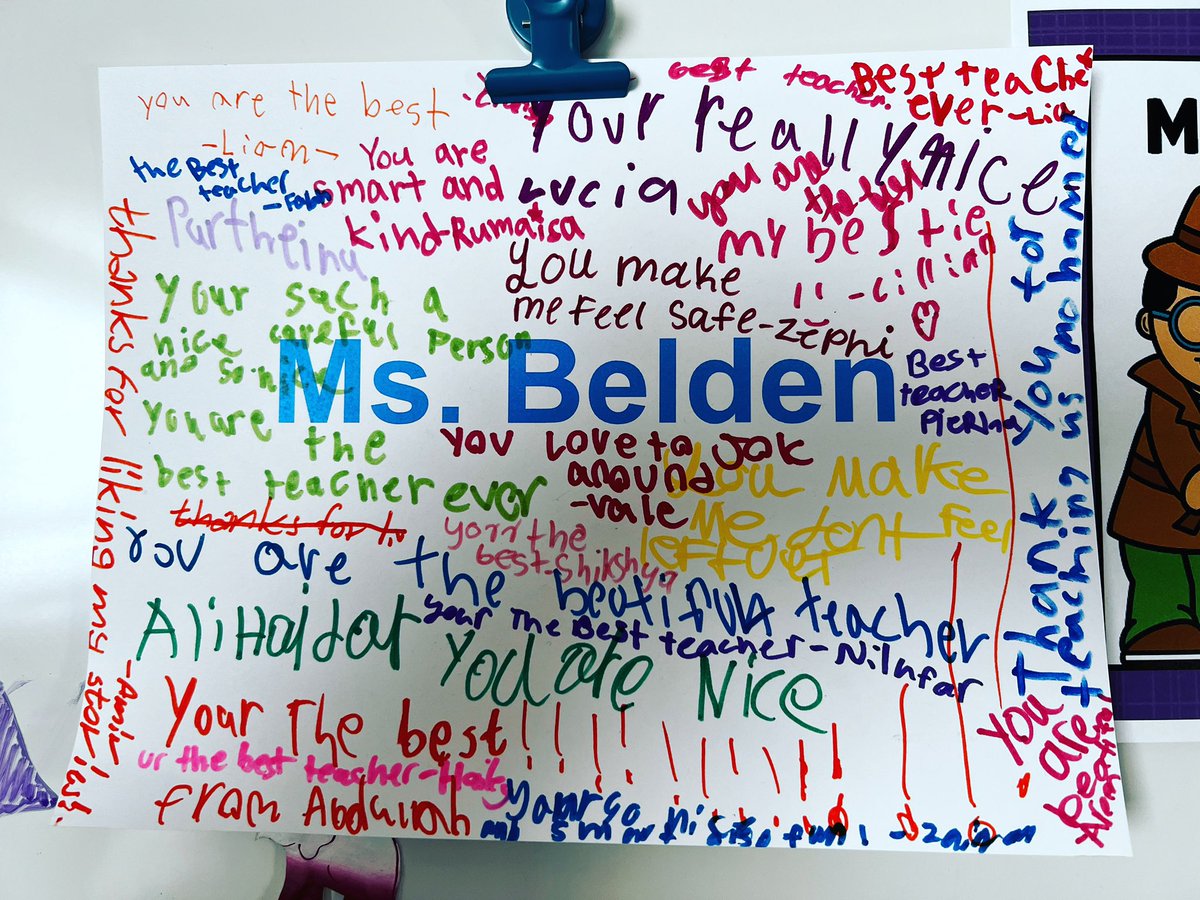 you are the best
-Liam-
best teacher.
Best teacher
ever -Lia
Your really nice
Lucia
the Best
teacher
You are
smart and
kind-Rumaisa
you are
the best
my bestie
!! -Lillian
you make
me feel safe-Zephi
Your such a
nice careful person
and
Ms. Belden
Best
teacher
Pierina
You are the
best teacher ever
You love to jok
around
-vale
You make
me dont feel
left out
thanks for
your the
best-Shikshya
You are the beatiful teacher
your The Best teacher-Nilufar
Ali Haidar You are Nice
Your The best!!!!!!!!!!!!!!
ur the best teacher-
from
and smart fun! -
thanks for liking my stories!
Thank you for
teaching us mohammed
You
are